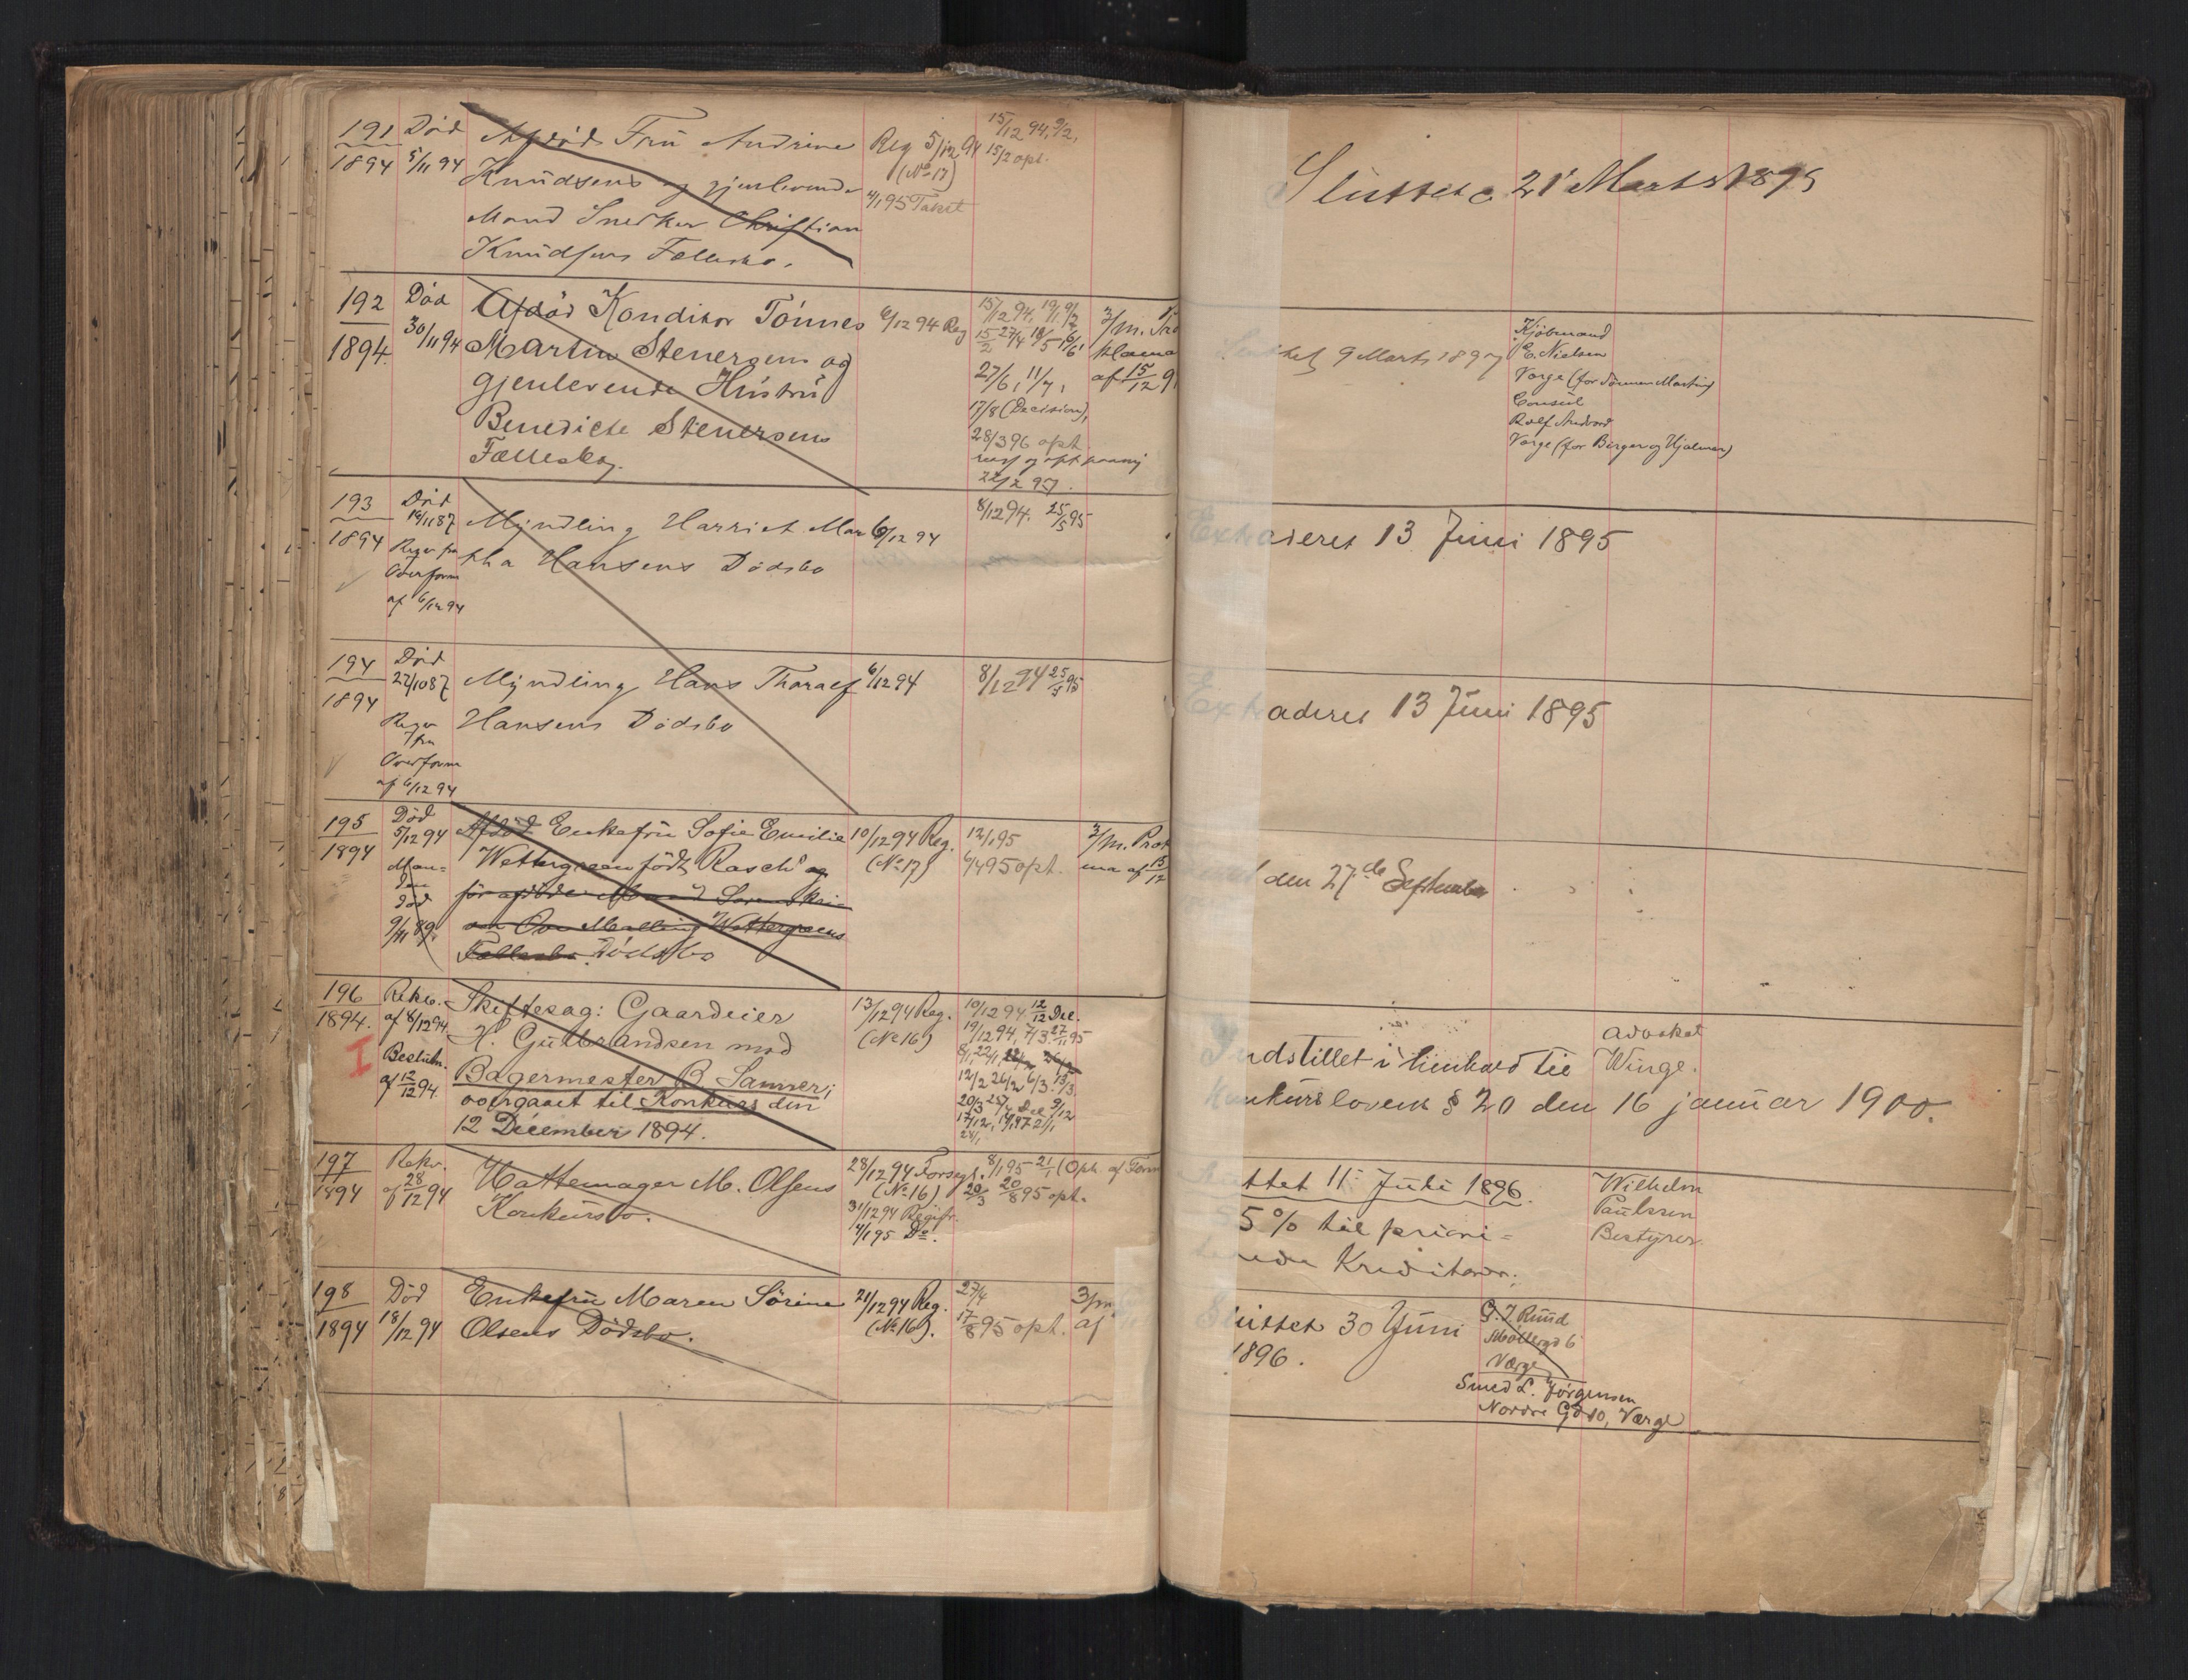 191
1894
Död
5/11 94
Afdöd Frü Andrine
Knüdsens og gjenlevende
Mand Snedker Christian
Knüdsens Fællesbo.
Reg 5/12 94
(No 17)
4/1 95 Takst
15/12 94, 9/2,
15/2 opt.
Sluttet 21 Marts 1895
192
1894
Död
30/11 94
Afdöd Konditor Tönnes
Martin Stenersens og
gjenlevende Hüstrü
Benedicte Stenersens
Fællesbo.
6/12 94 Reg
15/12 94, 19/1, 9/2
15/2 27/4 18/5 6/6
27/6, 11/7,
17/8 (Decision),
28/3 96 opt.
22/2 97.
3/m. Pro
klama
af 15/12 9
Sluttet 9 Marts 1897
Kjöbmand
E. Nielsen
Værge (for Tönnes Martin)
Consül
Rolf Andvord
Værge (for Birger og Hjalmar)
193
1894
Död
19/11 87
Reqv fra
Overform
af 6/12 94
Myndling Harriet Mar
tha Hansens Dödsbo
6/12 94
8/12 94. 25/5 95
Extraderet 13 Jüni 1895
194
1894
Död
22/10 87
Reqv
fra
Overform
af 6/12 94
Myndling Hans Thoralf
Hansens Dödsbo
6/12 94
8/12 94 25/5 95
Extraderet 13 Jüni 1895
195
1894
Död
5/12 94
Man=
den
död
9/11 89.
Afdöd Enkefrü Sofie Emilie
Wettergreen födt Rasch og
för afdöde Mand Sorenskri=
ver Ove Malling Wettergreens
Fællesbo. Dödsbo
10/12 94 Reg.
(No 17)
12/1 95
6/4 95 opt.
3/m. Prok
ma af 15/12
den 27de September
196
1894.
Rekv.
af 8/12 94.
Beslütn.
af 12/12 94.
I
Skiftesag: Gaardeier
H. Gülbrandsen mod
Bagermester B. Sanner;
overgaaet til Konkürs den
12 December 1894.
13/12 94 Reg.
(No 16)
10/12 94. 12/12 Dec.
12/2 26/2 6/3. 13/3
Indstillet i henhold til
Konkürslovens § 20 den 16 janüar 1900.
advokat
Winge.
197
1894
Rekv.
af 28/12 94
Hattemager M. Olsens
Konkürsbo.
28/12 94 Forsegl.
(No 16)
31/12 94 Registr.
4/1 95 Do.
8/1 95 21/1 (Opt. af Form
20/3 20/8 95 opt.
Slüttet 11 Jüli 1896.
5% til priori=
Kreditorer.
Wilhelm
Paülssen
Bestyrer.
198
1894
Död
18/12 94
Enkefrü Maren Sörine
Olsens Dödsbo.
21/12 94 Reg.
(No 16).
27/4
17/8 95 opt.
3/m
af
Slüttet 30 Jüni
1896.
G. J Rüüd
Möllergd 6
Værge
Smed L. Jörgensen
Nordre Gd 10, Værge